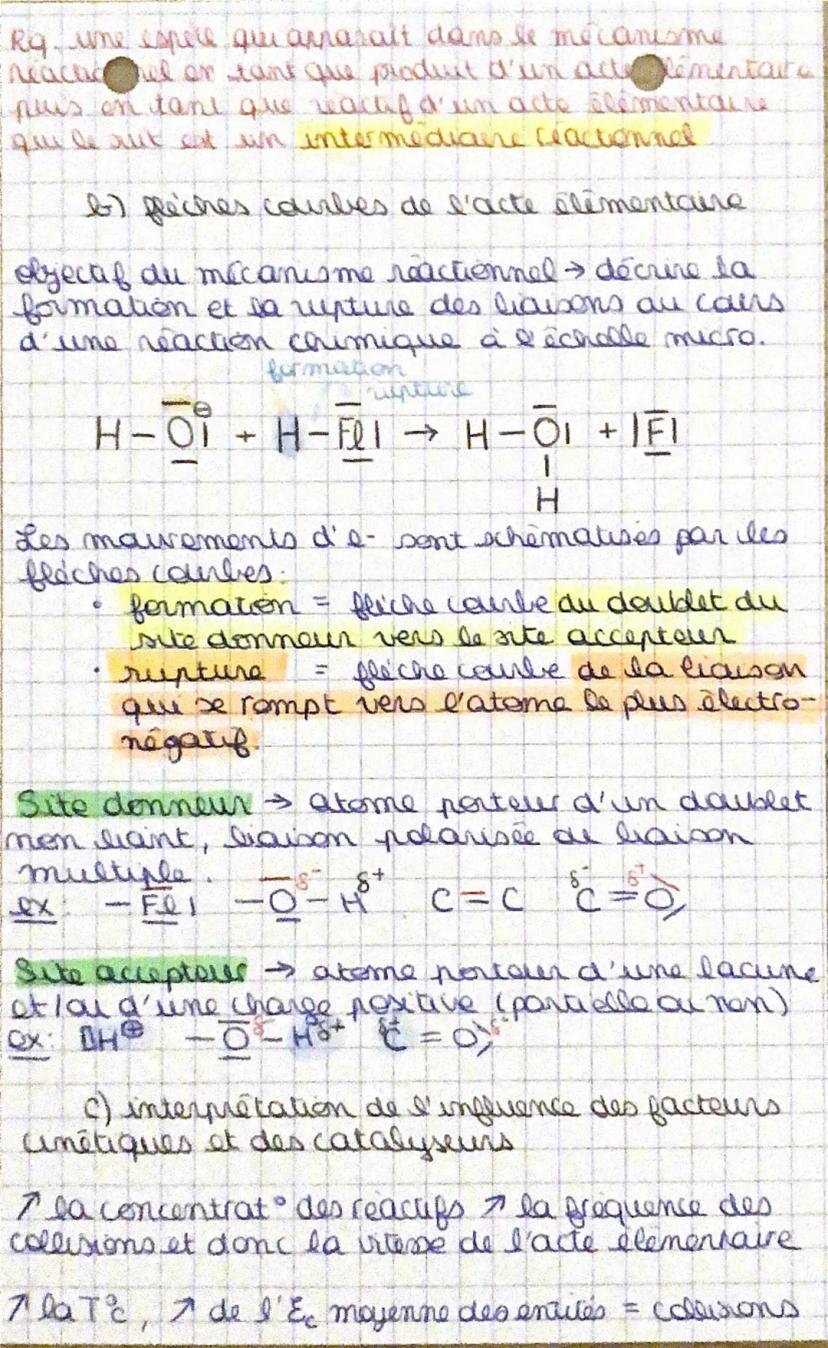 Rq. une espèce qui apparait dans le mécanisme
réactionnel en tant que produit d'un acte élémentaire
puis en tant que réactif d'un acte élémentaire
qui le suit est un intermédiaire réactionnel
b) flèches courbes de l'acte élémentaire
objectif du mécanisme réactionnel → décrire la
formation et la rupture des liaisons au cours
d'une réaction chimique à l'échelle micro.
formation
rupture
H – O| ⊖ + H – Fl| → H – O| + |F|
|
H
Les mouvements d'e- sont schématisés par les
flèches courbes:
• formation = flèche courbe du doublet du
site donneur vers le site accepteur
• rupture = flèche courbe de la liaison
qui se rompt vers l'atome le plus électro-
négatif.
Site donneur → atome porteur d'un doublet
non liant, liaison polarisée ou liaison
multiple.
ex: – Fl| – O δ- – H δ+ C = C δ- C = O δ+
Site accepteur → atome porteur d'une lacune
et/ou d'une charge positive (partielle ou non)
ex: H⊕ – O δ- – H δ+ δ+ C = O δ-
c) interprétation de l'influence des facteurs
cinétiques et des catalyseurs
↗ la concentrat° des réactifs ↗ la fréquence des
collisions et donc la vitesse de l'acte élémentaire
↗ la T°c, ↗ de l'Ec moyenne des entités = collisions